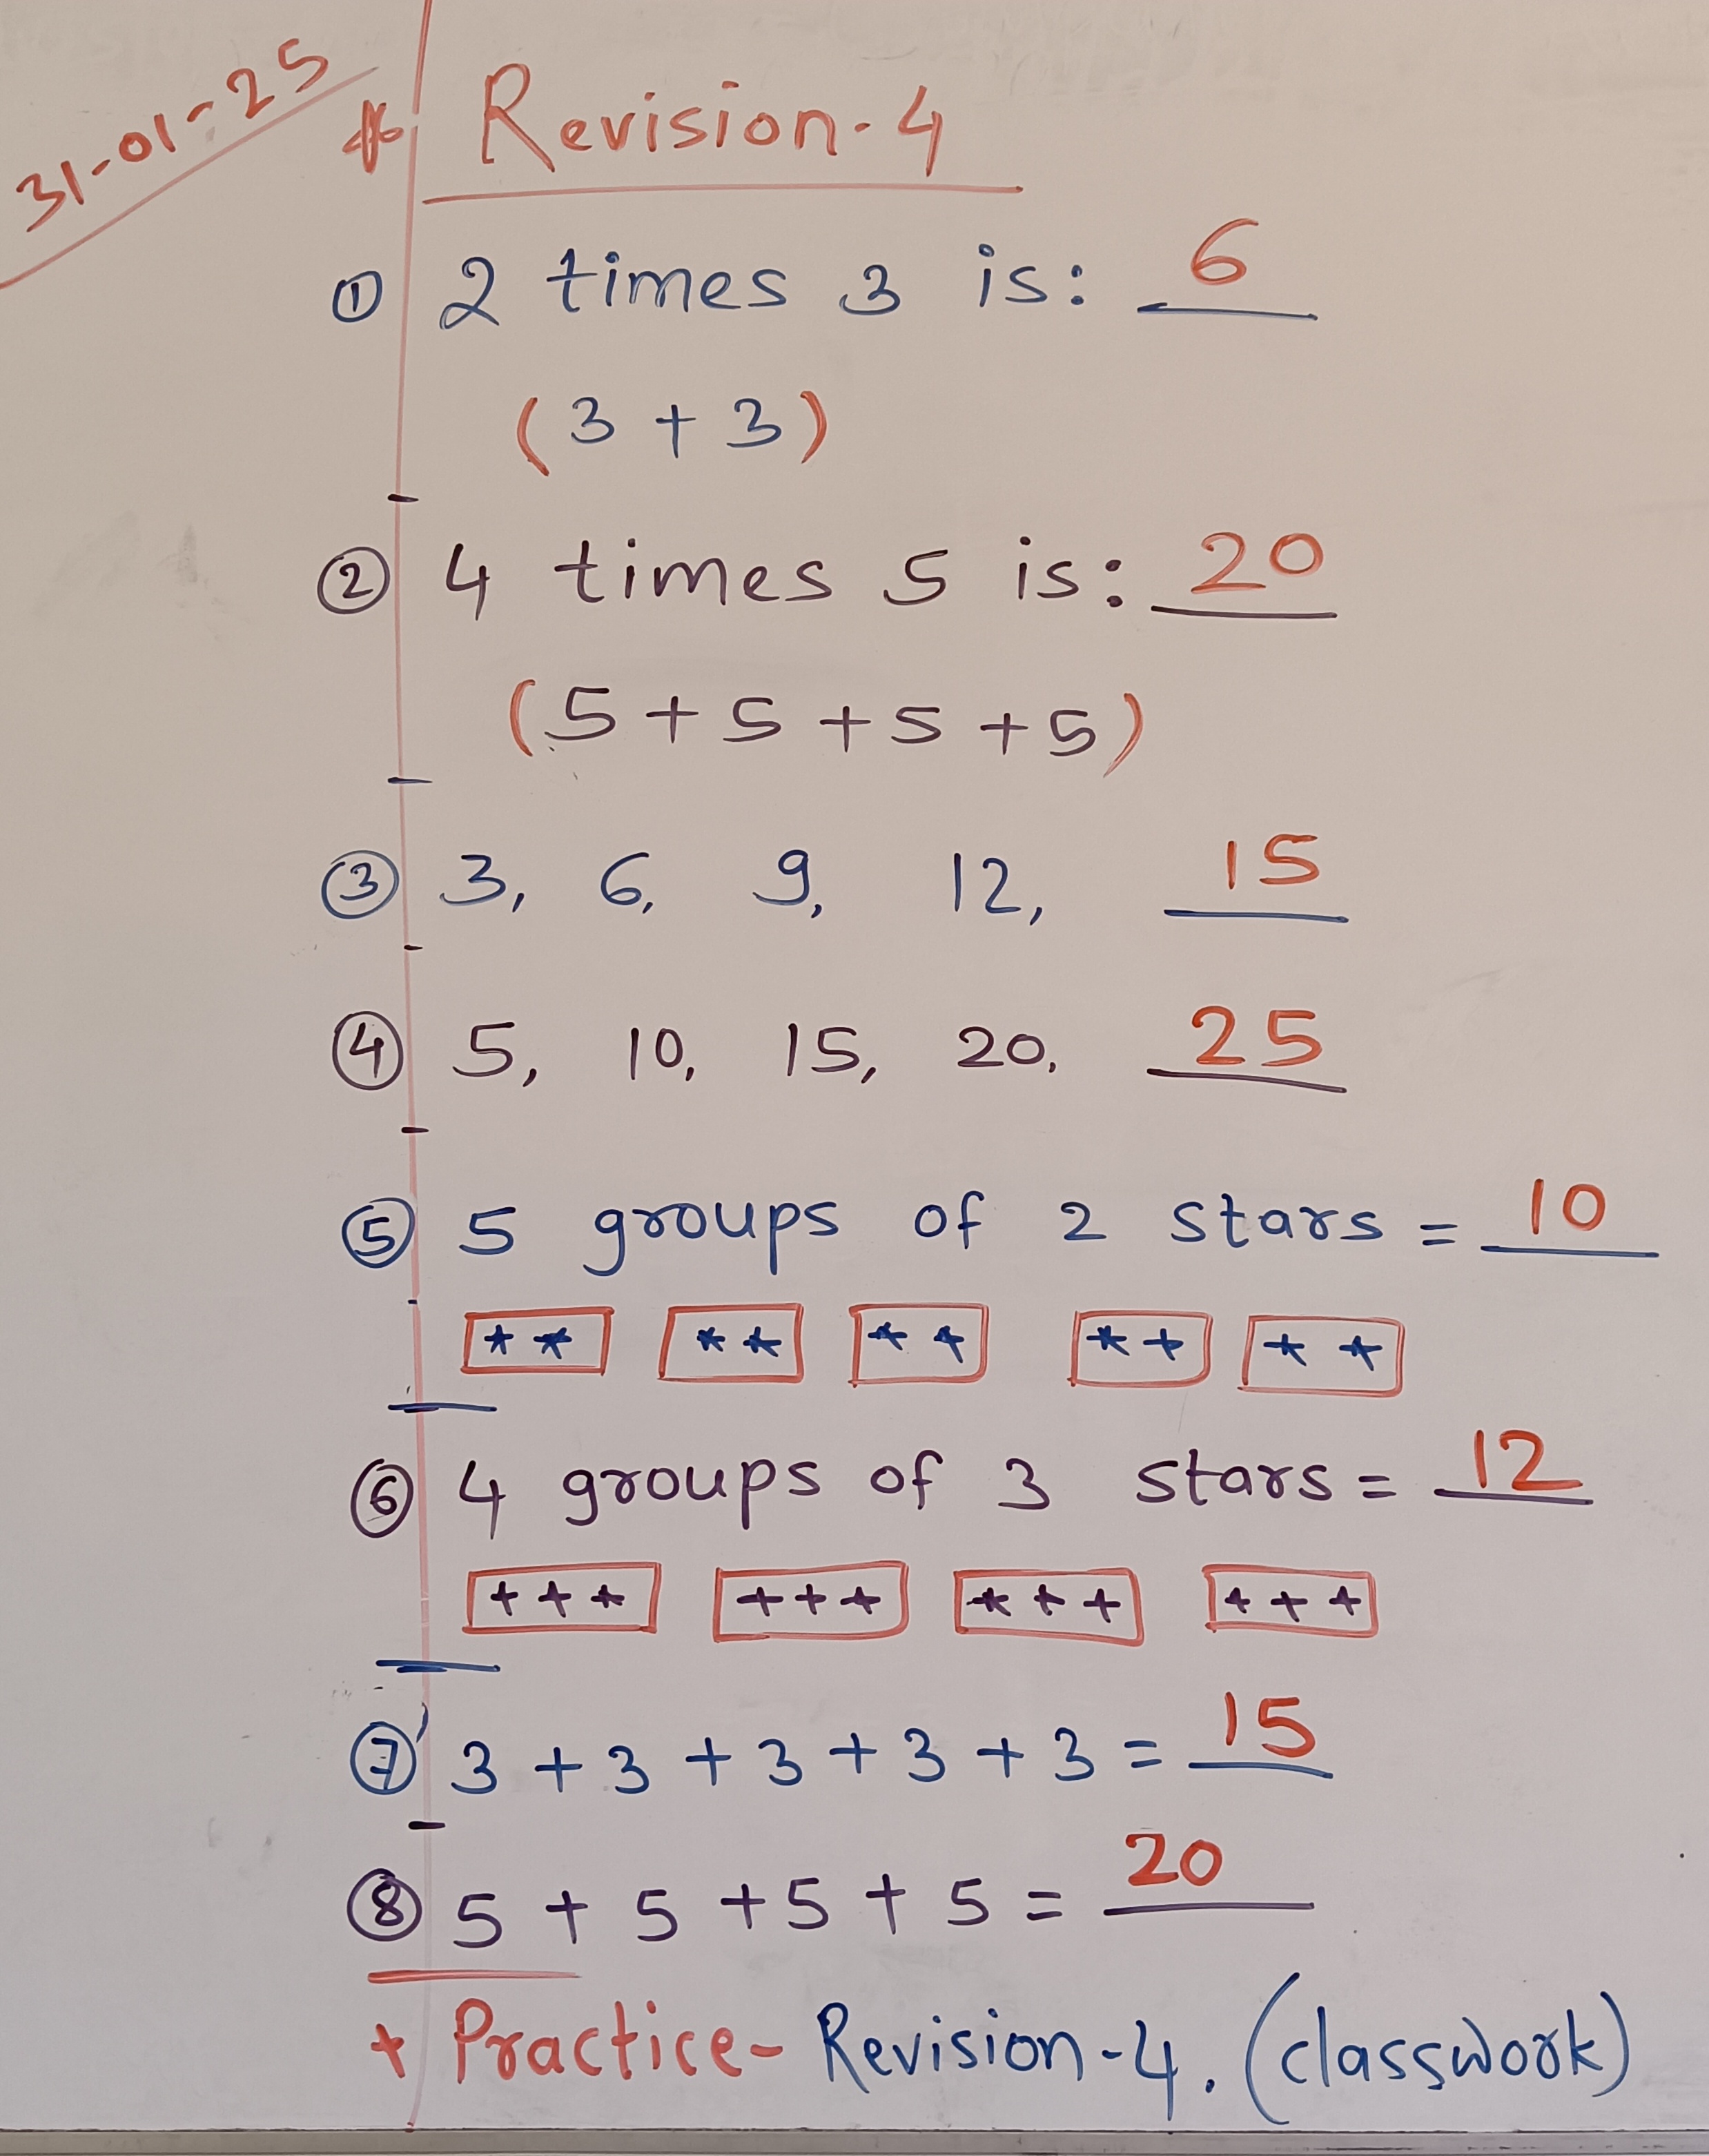 31-01-25
* Revision-4
① 2 times 3 is: 6
(3 + 3)
② 4 times 5 is: 20
(5 + 5 + 5 + 5)
③ 3, 6, 9, 12, 15
④ 5, 10, 15, 20, 25
⑤ 5 groups of 2 stars = 10
⑥ 4 groups of 3 stars = 12
⑦ 3 + 3 + 3 + 3 + 3 = 15
⑧ 5 + 5 + 5 + 5 = 20
* Practice- Revision-4. (classwork)